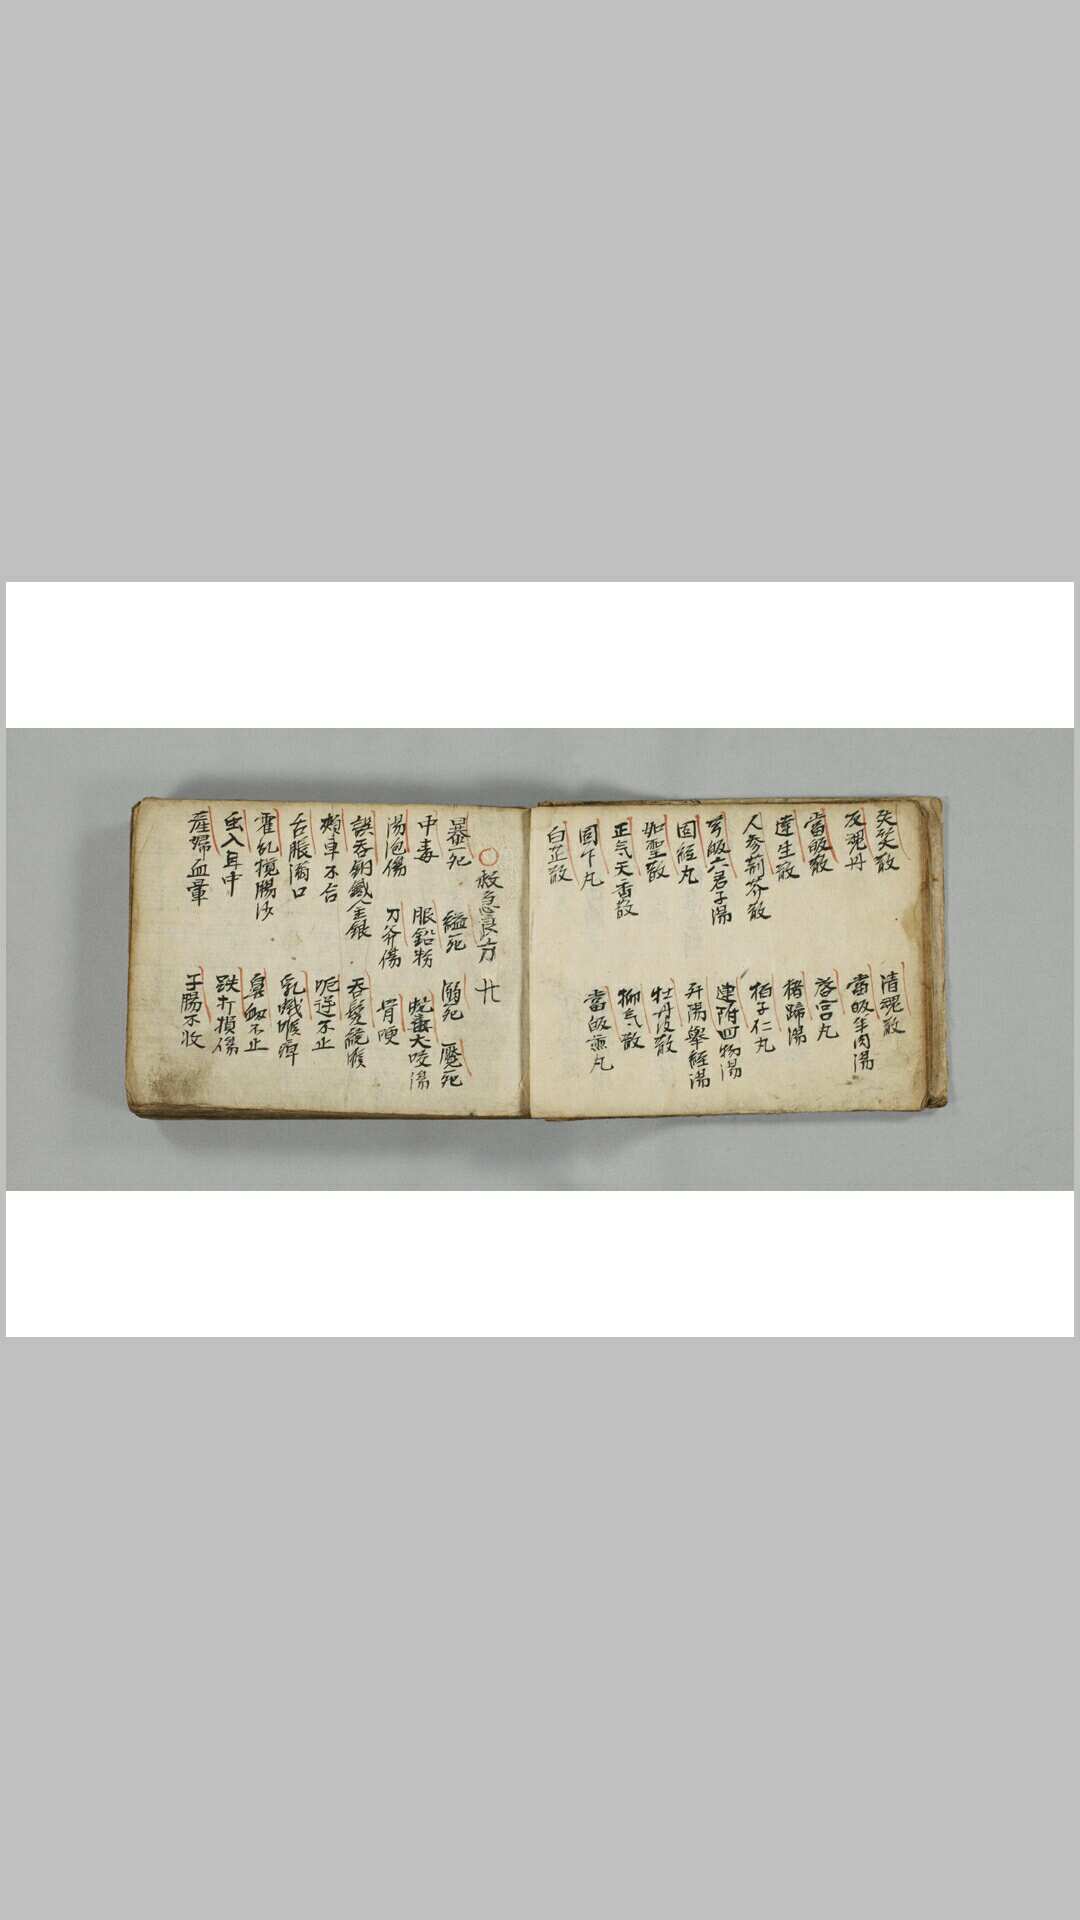 失笑散 清魂散
返魂丹 當皈羊肉湯
當皈散 啓宮丸
達生散 猪蹄湯
人参荊芥散 柏子仁丸
芎皈六君子湯 連附四物湯
固經丸 升陽舉經湯
如聖散 牡丹皮散
正气天香散 抑气散
固下丸 當皈煎丸
白芷散
○救急良方 廿
暴死 縊死 溺死 魘死
中毒 服鉛粉 蛇毒犬咬湯
湯泡傷 刀斧傷 骨哽
誤吞銅鐵金銀 吞髮繞喉
頰車不合 呃逆不止
舌脹滿口 乳蛾喉痺
霍乱攪腸沙 鼻衂不止
虫入耳中 跌打損傷
産婦血暈 子腸不收